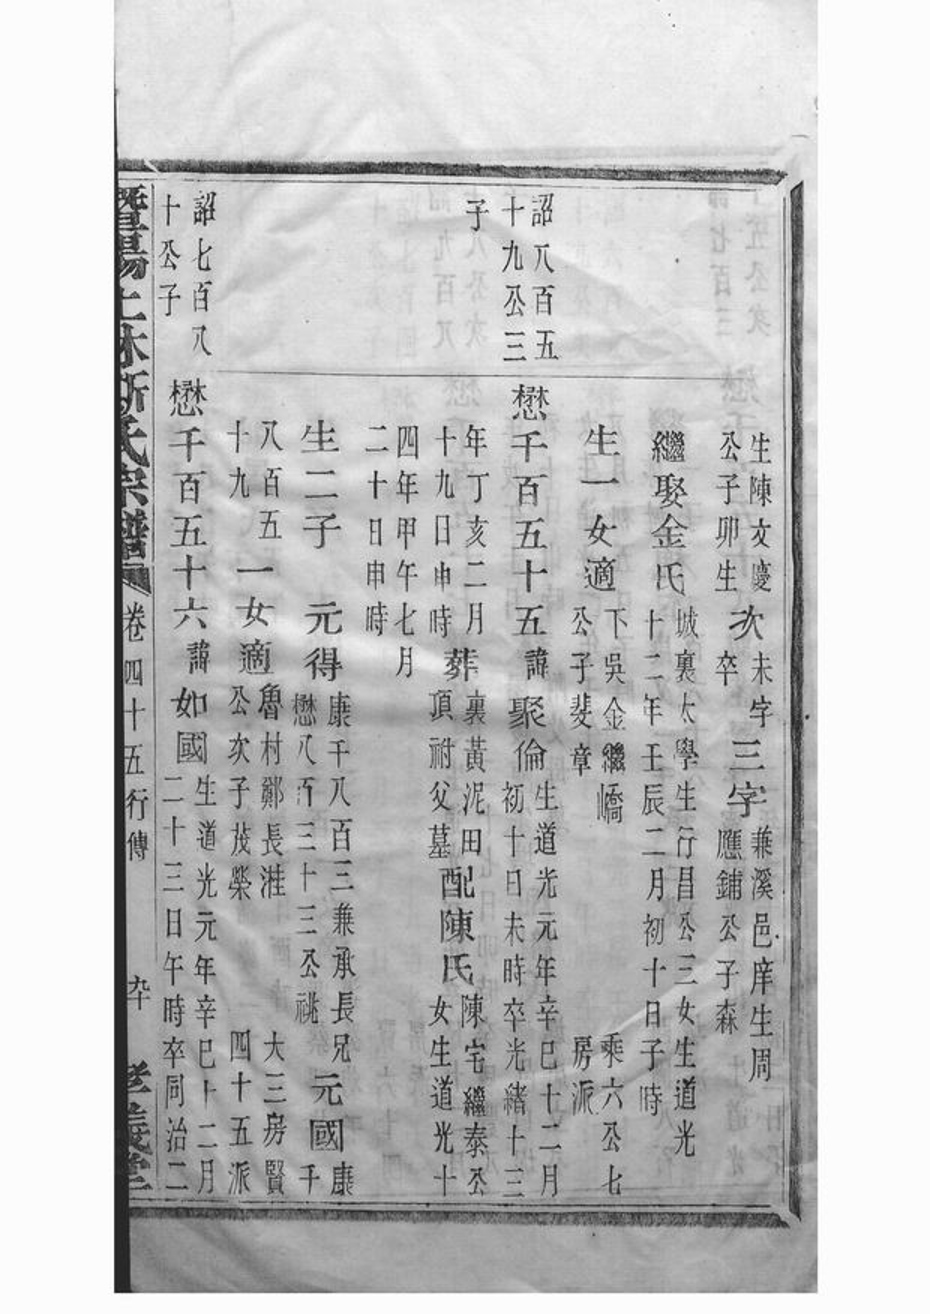 生陳文慶
公子卯生
次
未字
卒
三字
蕺溪邑庠生周
應鋪公子森
繼娶金氏
城裏太學生行昌公三女生道光
十二年壬辰二月初十日子時
生一女適
下吳金繼嶠
公子斐章
乘六公七
房派
詔八百五
十九公三
子
懋千百五十五諱聚倫
生道光元年辛巳十二月
初十日未時卒光緒十三
年丁亥二月
十九日申時
葬
裏黃泥田
頂祔父墓
配陳氏
陳宅繼泰公
女生道光十
四年甲午七月
二十日申時
生二子
元得
康千八百三兼承長兄
懋八百三十三公祧
元國
康千
八百五
十九
一女適
魯村鄭長淮
公次子茂榮
大三房賢
四十五派
詔七百八
十公子
懋千百五十六諱如國
生道光元年辛巳十二月
二十三日午時卒同治二
暨陽上林斯氏宗譜
卷四十五行傳
孝義堂